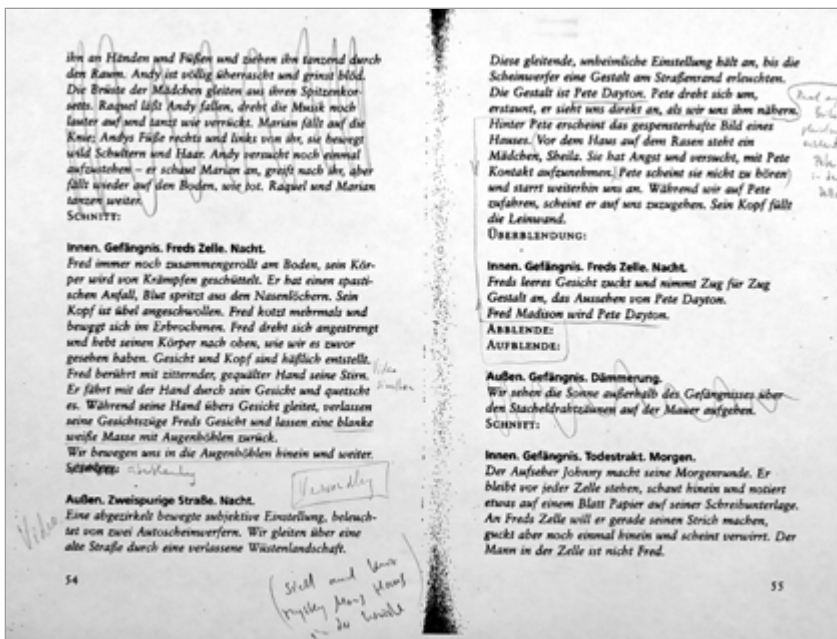 ihn an Händen und Füßen und ziehen ihn tanzend durch
den Raum. Andy ist völlig überrascht und grinst blöd.
Die Brüste der Mädchen gleiten aus ihren Spitzenkor-
setts. Raquel läßt Andy fallen, dreht die Musik noch
lauter auf und tanzt wie verrückt. Marian fällt auf die
Knie; Andys Füße rechts und links von ihr, sie bewegt
wild Schultern und Haar. Andy versucht noch einmal
aufzustehen – er schaut Marian an, greift nach ihr, aber
fällt wieder auf den Boden, wie tot. Raquel und Marian
tanzen weiter.
SCHNITT:
Innen. Gefängnis. Freds Zelle. Nacht.
Fred immer noch zusammengerollt am Boden, sein Kör-
per wird von Krämpfen geschüttelt. Er hat einen spasti-
schen Anfall, Blut spritzt aus den Nasenlöchern. Sein
Kopf ist übel angeschwollen. Fred kotzt mehrmals und
bewegt sich im Erbrochenen. Fred dreht sich angestrengt
und hebt seinen Körper nach oben, wie wir es zuvor
gesehen haben. Gesicht und Kopf sind häßlich entstellt.
Fred berührt mit zitternder, gequälter Hand seine Stirn.
Er fährt mit der Hand durch sein Gesicht und quetscht
es. Während seine Hand übers Gesicht gleitet, verlassen
seine Gesichtszüge Freds Gesicht und lassen eine blanke
weiße Masse mit Augenhöhlen zurück.
Wir bewegen uns in die Augenhöhlen hinein und weiter.
Video
Außen. Zweispurige Straße. Nacht.
Eine abgezirkelt bewegte subjektive Einstellung, beleuch-
tet von zwei Autoscheinwerfern. Wir gleiten über eine
alte Straße durch eine verlassene Wüstenlandschaft.
Video
54
Diese gleitende, unheimliche Einstellung hält an, bis die
Scheinwerfer eine Gestalt am Straßenrand erleuchten.
Die Gestalt ist Pete Dayton. Pete dreht sich um,
erstaunt, er sieht uns direkt an, als wir uns ihm nähern.
Hinter Pete erscheint das gespensterhafte Bild eines
Hauses. Vor dem Haus auf dem Rasen steht ein
Mädchen, Sheila. Sie hat Angst und versucht, mit Pete
Kontakt aufzunehmen. Pete scheint sie nicht zu hören
und starrt weiterhin uns an. Während wir auf Pete
zufahren, scheint er auf uns zuzugehen. Sein Kopf füllt
die Leinwand.
ÜBERBLENDUNG:
Innen. Gefängnis. Freds Zelle. Nacht.
Freds leeres Gesicht zuckt und nimmt Zug für Zug
Gestalt an, das Aussehen von Pete Dayton.
Fred Madison wird Pete Dayton.
ABBLENDE:
AUFBLENDE:
Außen. Gefängnis. Dämmerung.
Wir sehen die Sonne außerhalb des Gefängnisses über
den Stacheldrahtzäunen auf der Mauer aufgehen.
SCHNITT:
Innen. Gefängnis. Todestrakt. Morgen.
Der Aufseher Johnny macht seine Morgenrunde. Er
bleibt vor jeder Zelle stehen, schaut hinein und notiert
etwas auf einem Blatt Papier auf seiner Schreibunterlage.
An Freds Zelle will er gerade seinen Strich machen,
guckt aber noch einmal hinein und scheint verwirrt. Der
Mann in der Zelle ist nicht Fred.
55